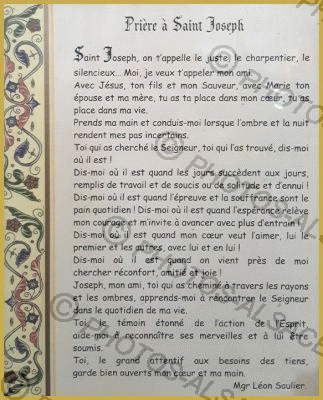 Prière à Saint Joseph
Saint Joseph, on t'appelle le juste, le charpentier, le
silencieux... Moi, je veux t'appeler mon ami.
Avec Jésus, ton fils et mon Sauveur, avec Marie ton
épouse et ma mère, tu as ta place dans mon cœur, tu as
place dans ma vie.
Prends ma main et conduis-moi lorsque l'ombre et la nuit
rendent mes pas incertains.
Toi qui as cherché le Seigneur, toi qui l'as trouvé, dis-moi
où il est !
Dis-moi où il est quand les jours succèdent aux jours,
remplis de travail et de soucis ou de solitude et d'ennui !
Dis-moi où il est quand l'épreuve et la souffrance sont le
pain quotidien ! Dis-moi où il est quand l'espérance relève
mon courage et m'invite à avancer avec plus d'entrain !
Dis-moi où il est quand mon cœur veut l'aimer, lui le
premier et les autres, avec lui et en lui !
Dis-moi où il est quand on vient près de moi
chercher réconfort, amitié et joie !
Joseph, mon ami, toi qui as cherché à travers les rayons
et les ombres, apprends-moi à rencontrer le Seigneur
dans le quotidien de ma vie.
Toi, le témoin étonné de l'action de l'Esprit,
aide-moi à reconnaître ses merveilles et à lui être
soumis.
Toi, le grand attentif aux besoins des tiens,
garde bien ouverts mon cœur et ma main.
Mgr Léon Soulier.
© PHOTOS-ALSACE